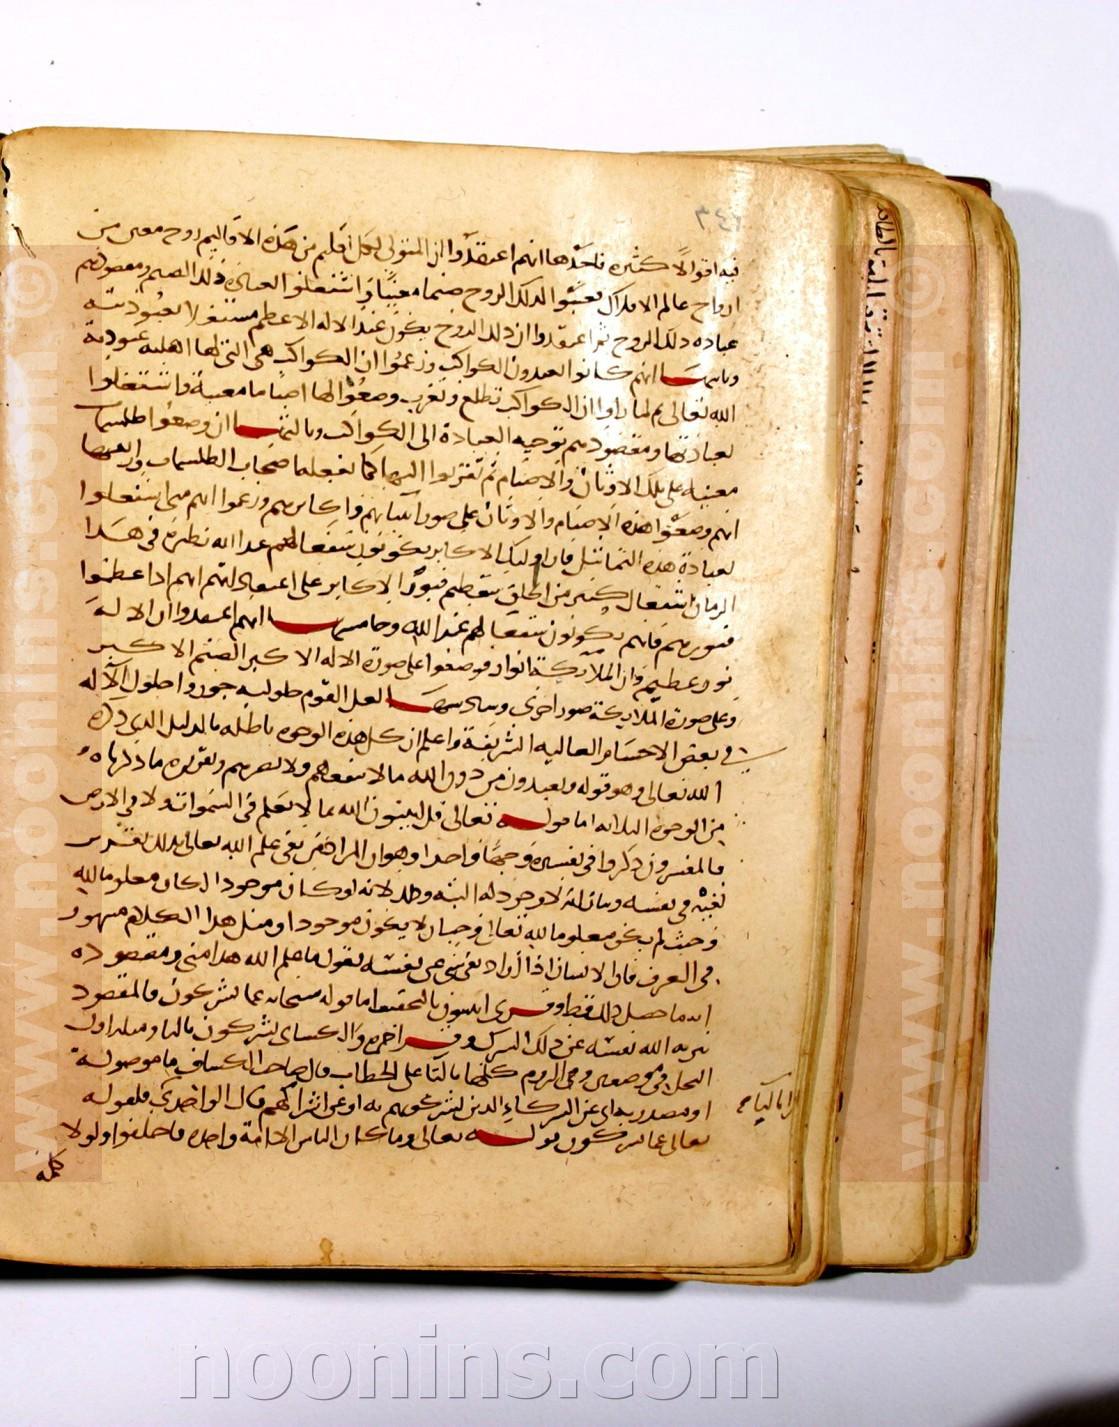 فيه اقوالا كثيره فاحدها انهم اعتقدوا ان المتولي لكل اقليم من هذه الاقاليم روح معين من
ارواح عالم الافلاك فعينوا لذلك الروح صنما معينا واشتغلوا بعباده ذلك الصنم ومقصودهم
عباده ذلك الروح ثم اعتقدوا ان ذلك الروح يكون عند الاله الاعظم مشتغلا بعبوديته
وثانيها انهم كانوا يعبدون الكواكب وزعموا ان الكواكب هي التي لها اهلية عبودية
الله تعالى ثم لما راوا ان الكواكب تطلع وتغرب وضعوا لها اصناما معينة واشتغلوا
بعبادتها ومقصودهم توجيه العبادة الى الكواكب وثالثها ان وضعوا طلسمات
معينه على تلك الاوثان والاصنام ثم تقربوا اليها كما يفعله اصحاب الطلسمات ورابعها
انهم وضعوا هذه الاصنام والاوثان على صور انبيائهم واكابرهم وزعموا انهم متى اشتغلوا
بعبادة هذه التماثيل فان اوليك الاكابر يكونون شفعا لهم عند الله نظيره في هذا
الزمان اشتغال كثير من الخلق بتعظيم قبور الاكابر على اعتقاد انهم اذا عظموا
قبورهم فانهم يكونون شفعا لهم عند الله وخامسها انهم اعتقدوا ان الاله
نور عظيم وان الملايكة انوار فوضعوا على صورة الاله الاكبر الصنم الاكبر
وعلى صورة الملايكة صور اخرى وسادسها لعل القوم حلوليه جوزوا حلول الاله
في بعض الاجسام العاليه الشريفة واعلم ان كل هذه الوجوه باطله بالدليل الذي ذكره
الله تعالى وهو قوله ويعبدون من دون الله ما لا ينفعهم ولا يضرهم وتقريره ما ذكرناه
من الوجوه الثلاثه اما قوله تعالى قل اتنبئون الله بما لا يعلم في السموات ولا في الارض
فالمفسرون ذكروا في تفسيره وجها واحدا وهو ان المراد من نفي علم الله تعالى بذلك تقرير
نفيه في نفسه وبيان انه لا وجود له البتة وذلك لانه لو كان موجودا لكان معلوما لله
وحيث لم يكن معلوما لله تعالى وجب ان لا يكون موجودا ومثل هذا الكلام مشهور
في العرف فان الانسان اذا اراد نفي شي عن نفسه يقول ما علم الله هذا مني ومقصوده
انه ما حصل ذلك قط وقرى اتنبئون بالتخفيف اما قوله سبحانه عما يشركون فالمقصود
تنزيه الله نفسه عن ذلك الشرك وقرا حمزه والكسائي تشركون بالتا ومثله في اول
النحل في موضعين وفي الروم كلها بالتا على الخطاب قال صاحب الكشاف ما موصولة
او مصدريه اي عن الشركاء الذين تشركونهم به او عن اشراكهم قال الواحدي فلقوله
تعالى عما يشركون قوله تعالى وما كان الناس الا امة واحدة فاختلفوا ولولا
كلمة